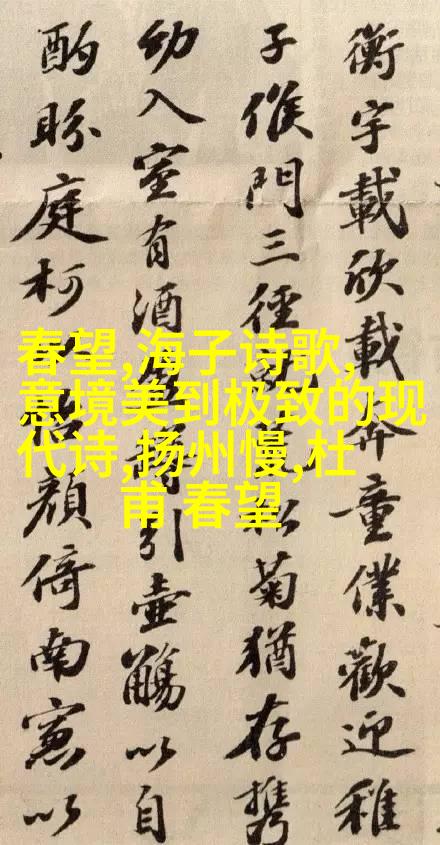 春望,海子诗歌,
意境美到极致的现
代诗,扬州慢,杜
甫 春望
衡宇載欣載奔童僕歡迎稚
子候門三徑松菊猶存携
幼入室有酒引壺觴以自
酌眄庭柯顏倚南窻以